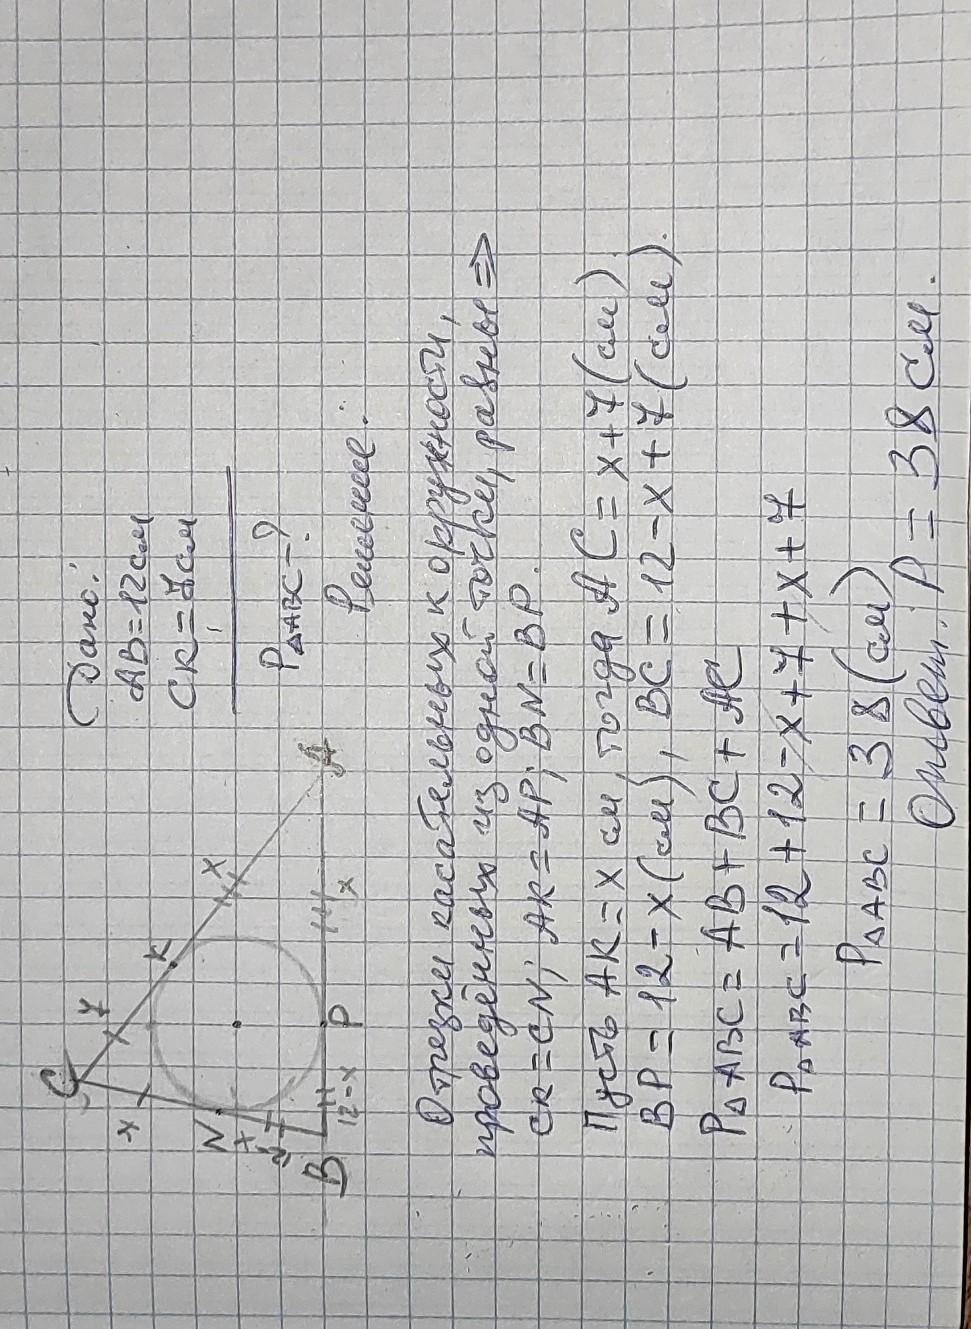 C
7
K
x
A
x
N
12-x
B
12-x
P
x
Дано:
AB=12см
CK=7см
P△ABC-?
Решение.
Отрезки касательных к окружности,
проведённых из одной точки, равны ⇒
CK=CN; AK=AP; BN=BP.
Пусть AK=x см, тогда AC=x+7(см)
BP=12-x(см), BC=12-x+7(см).
P△ABC=AB+BC+AC
P△ABC=12+12-x+7+x+7
P△ABC=38(см)
Ответ: P=38 см.